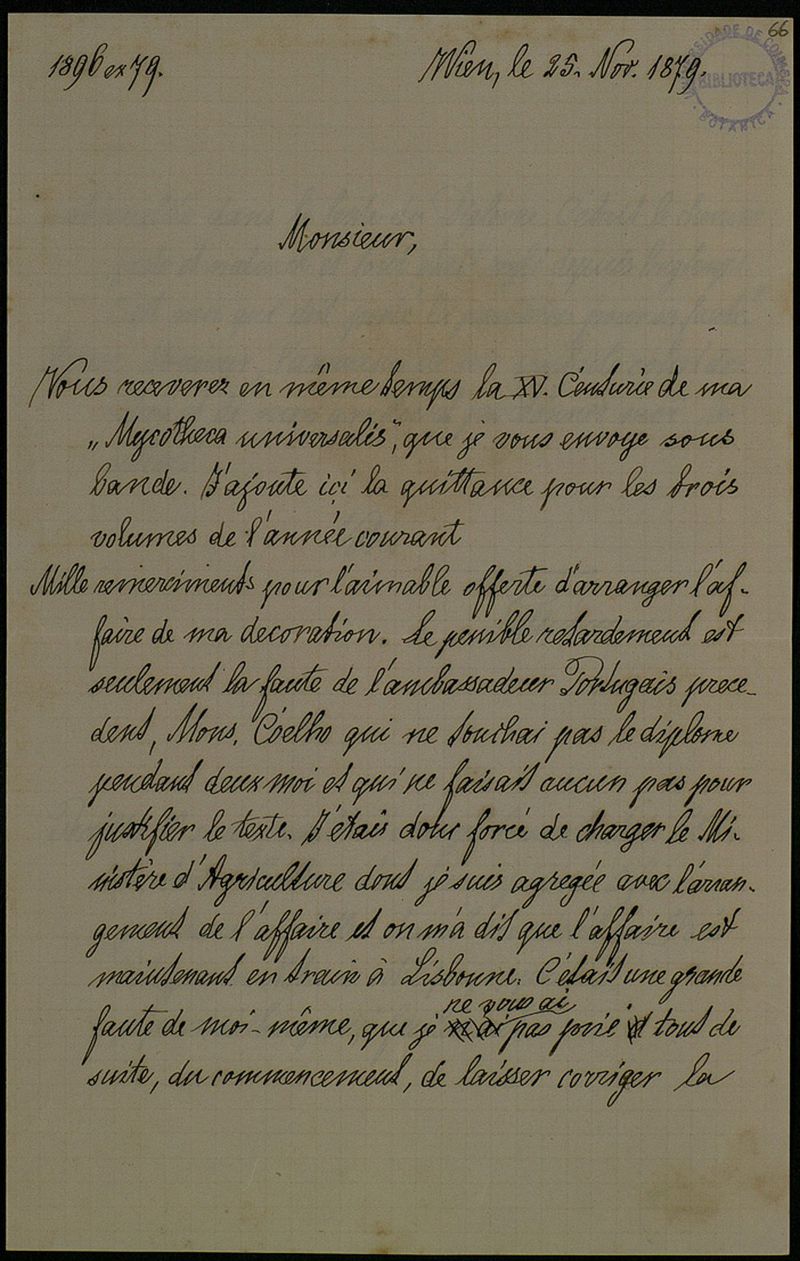 66
UNIVERSIDADE DE COIMBRA
BIBLIOTECA
BOTANICA
1896 ex 79.
Wien, le 25. Nov. 1879.
Monsieur,
Vous receverez en même temps la XV. Centurie de ma
„Mycotheca universalis", que je vous envoye sous
bande. J'ajoute içi la quittance pour les trois
volumes de l'année courant
Mille remerciments pour l'aimable offerte d'arranger l'af-
faire de ma decoration. Le penible retardement est
seulement la faute de l'ambassadeur Portugais prece-
dent, Mons. Cóelho qui ne touchai pas le diplome
pendant deux moi et qui ne faisait aucun pas pour
justifier le texte. J'étais donc forcé de charger le Mi-
nistère d'Agriculture dont je suis agregée avec l'arran-
gement de l'affaire et on m'a dit que l'affaire est
maintenant en train à Lisbonne. C'était une grande
ne vous ai
faute de moi-même, que je pas prié tout de
suite, du commencement, de laisser corriger la